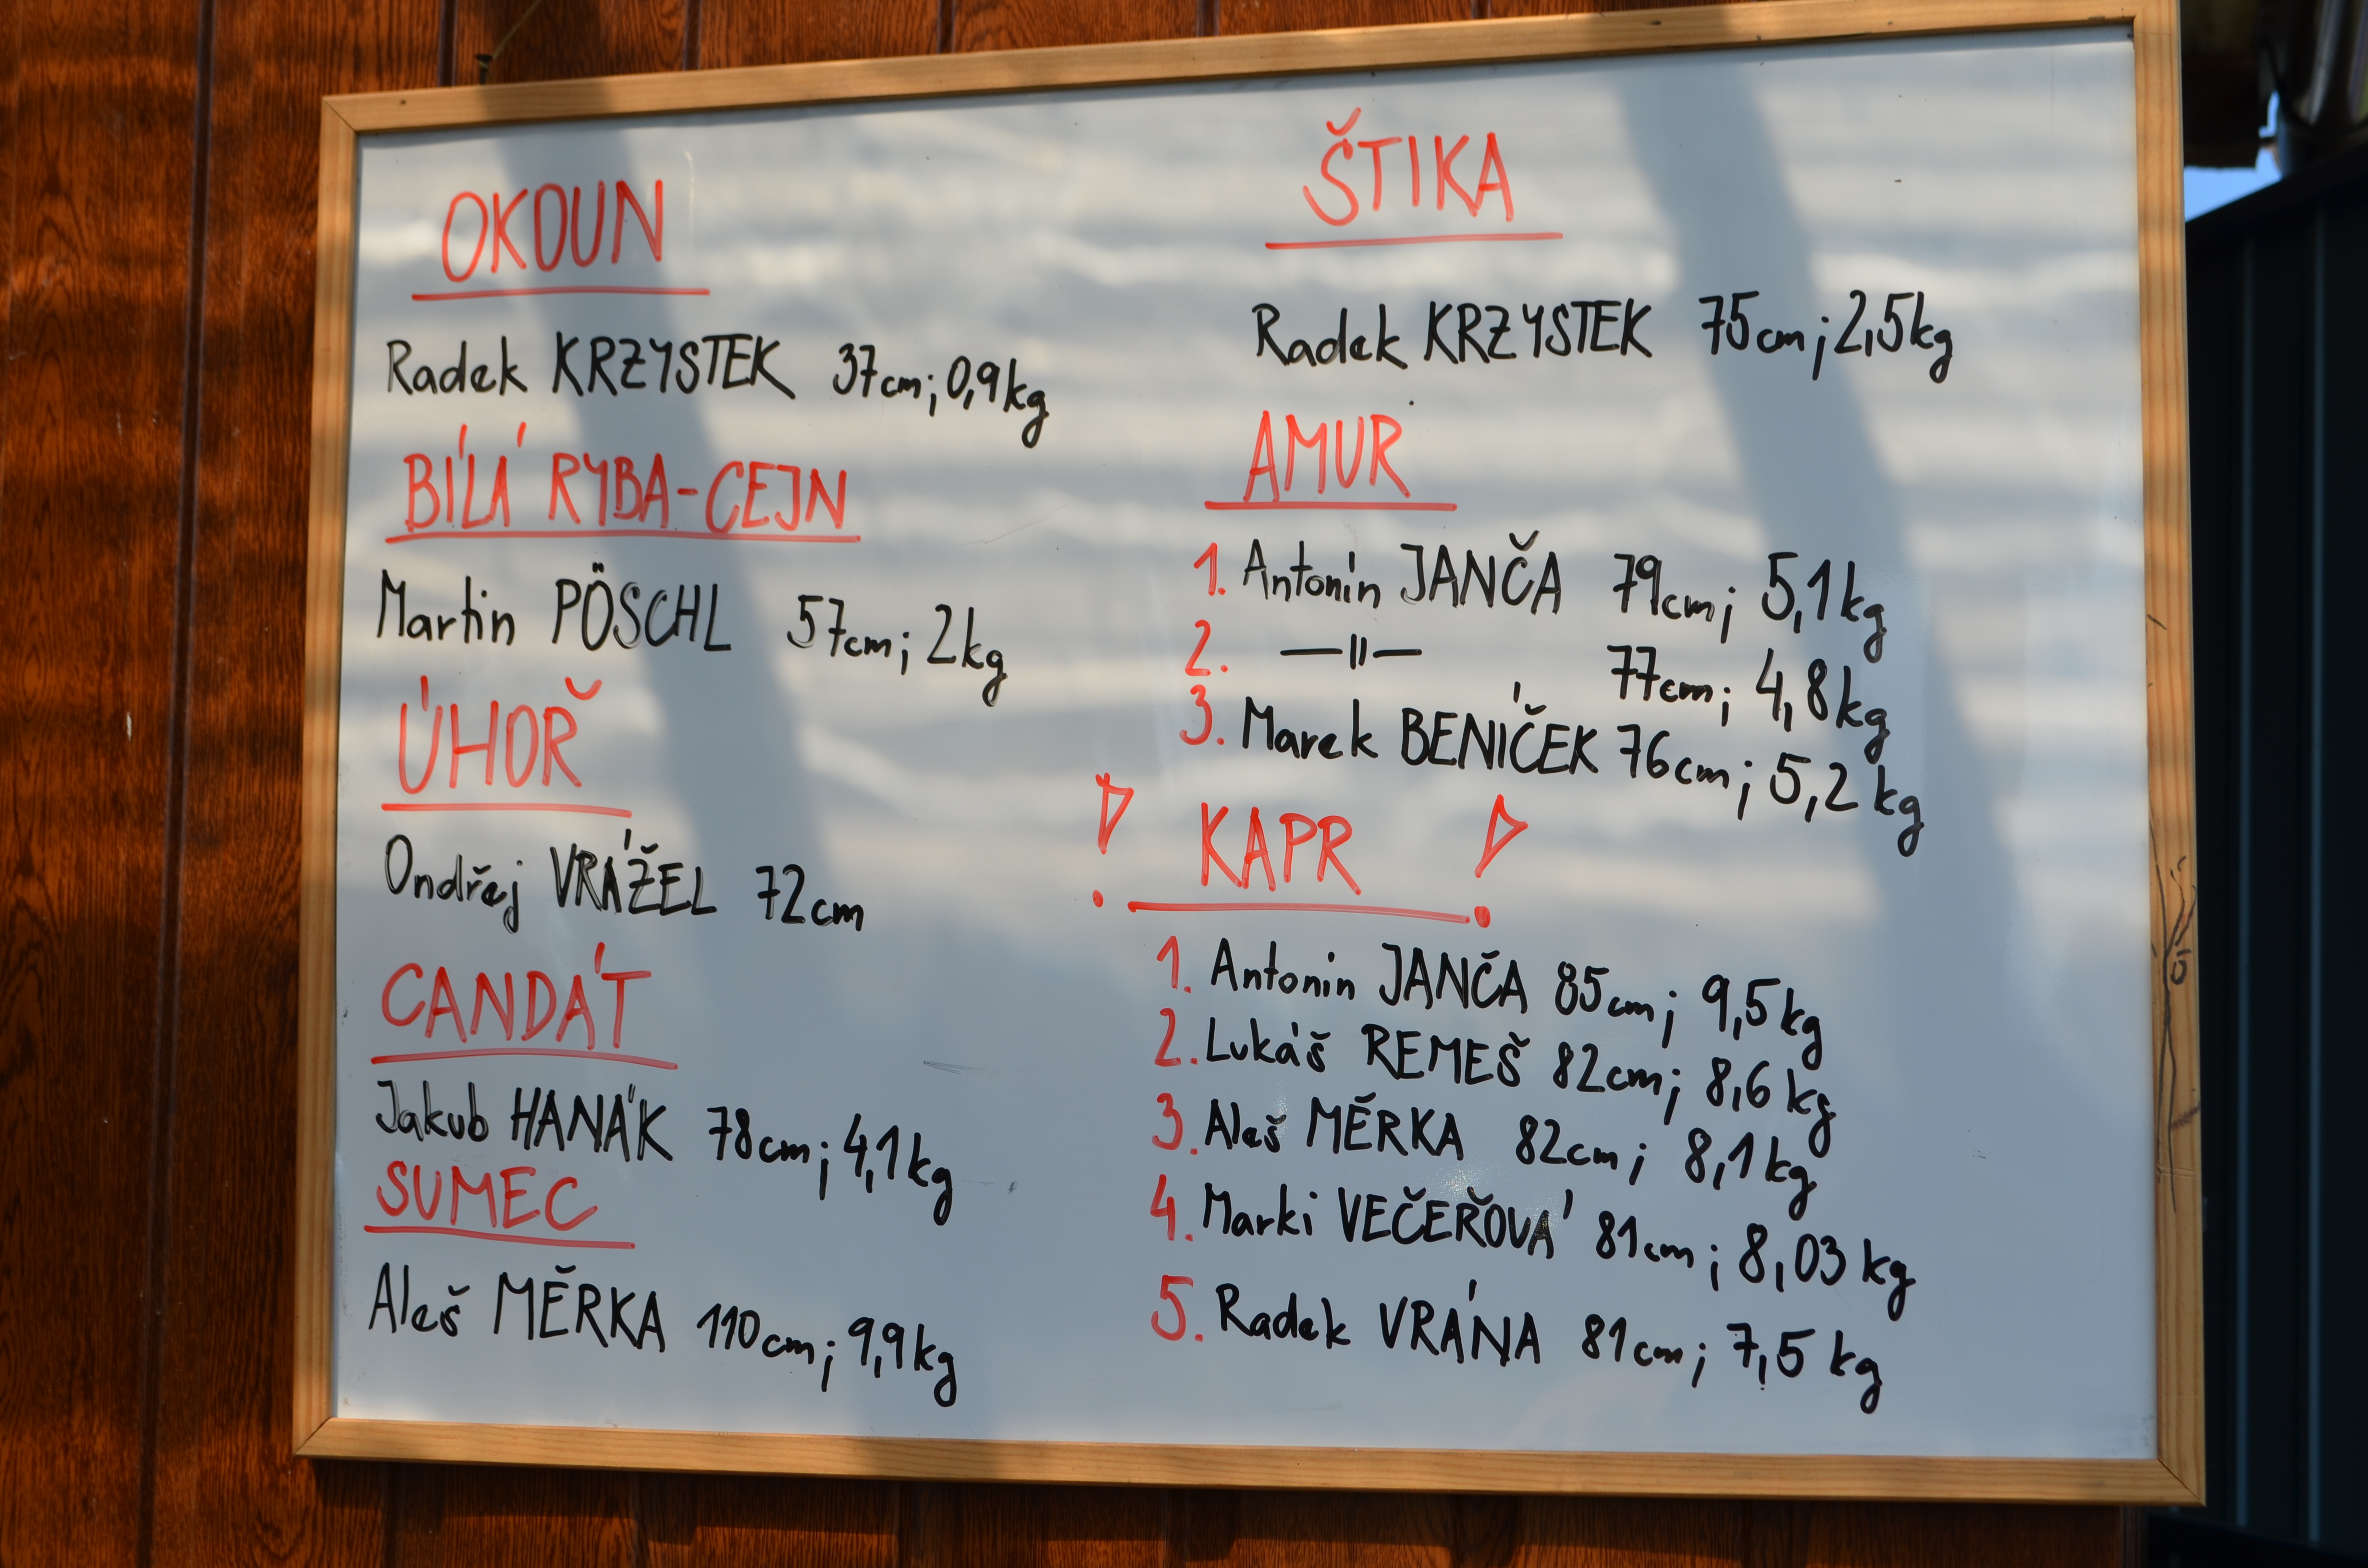 OKOUN
Radek KRZYSTEK 37cm; 0,9kg
BÍLÁ RYBA-CEJN
Martin PÖSCHL 57cm; 2kg
ÚHOŘ
Ondřej VRÁŽEL 72cm
CANDÁT
Jakub HANÁK 78cm; 4,1kg
SUMEC
Aleš MĚRKA 110cm; 9,9kg
ŠTIKA
Radek KRZYSTEK 75cm; 2,5kg
AMUR
1. Antonín JANČA 79cm; 5,1kg
2. —||— 77cm; 4,8kg
3. Marek BENÍČEK 76cm; 5,2kg
! KAPR !
1. Antonin JANČA 85cm; 9,5kg
2. Lukáš REMEŠ 82cm; 8,6kg
3. Aleš MĚRKA 82cm; 8,1kg
4. Marki VEČEŘOVÁ 81cm; 8,03kg
5. Radek VRÁNA 81cm; 7,5kg